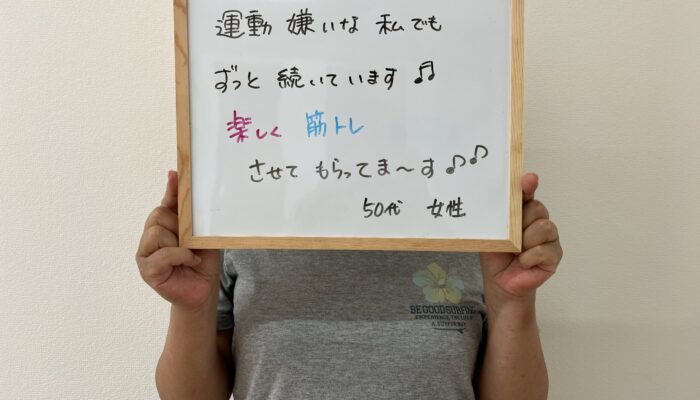 運動 嫌いな 私でも
ずっと 続いています ♫
楽しく 筋トレ
させて もらってま〜す ♪♪
50代 女性
BE GOOD SURFING